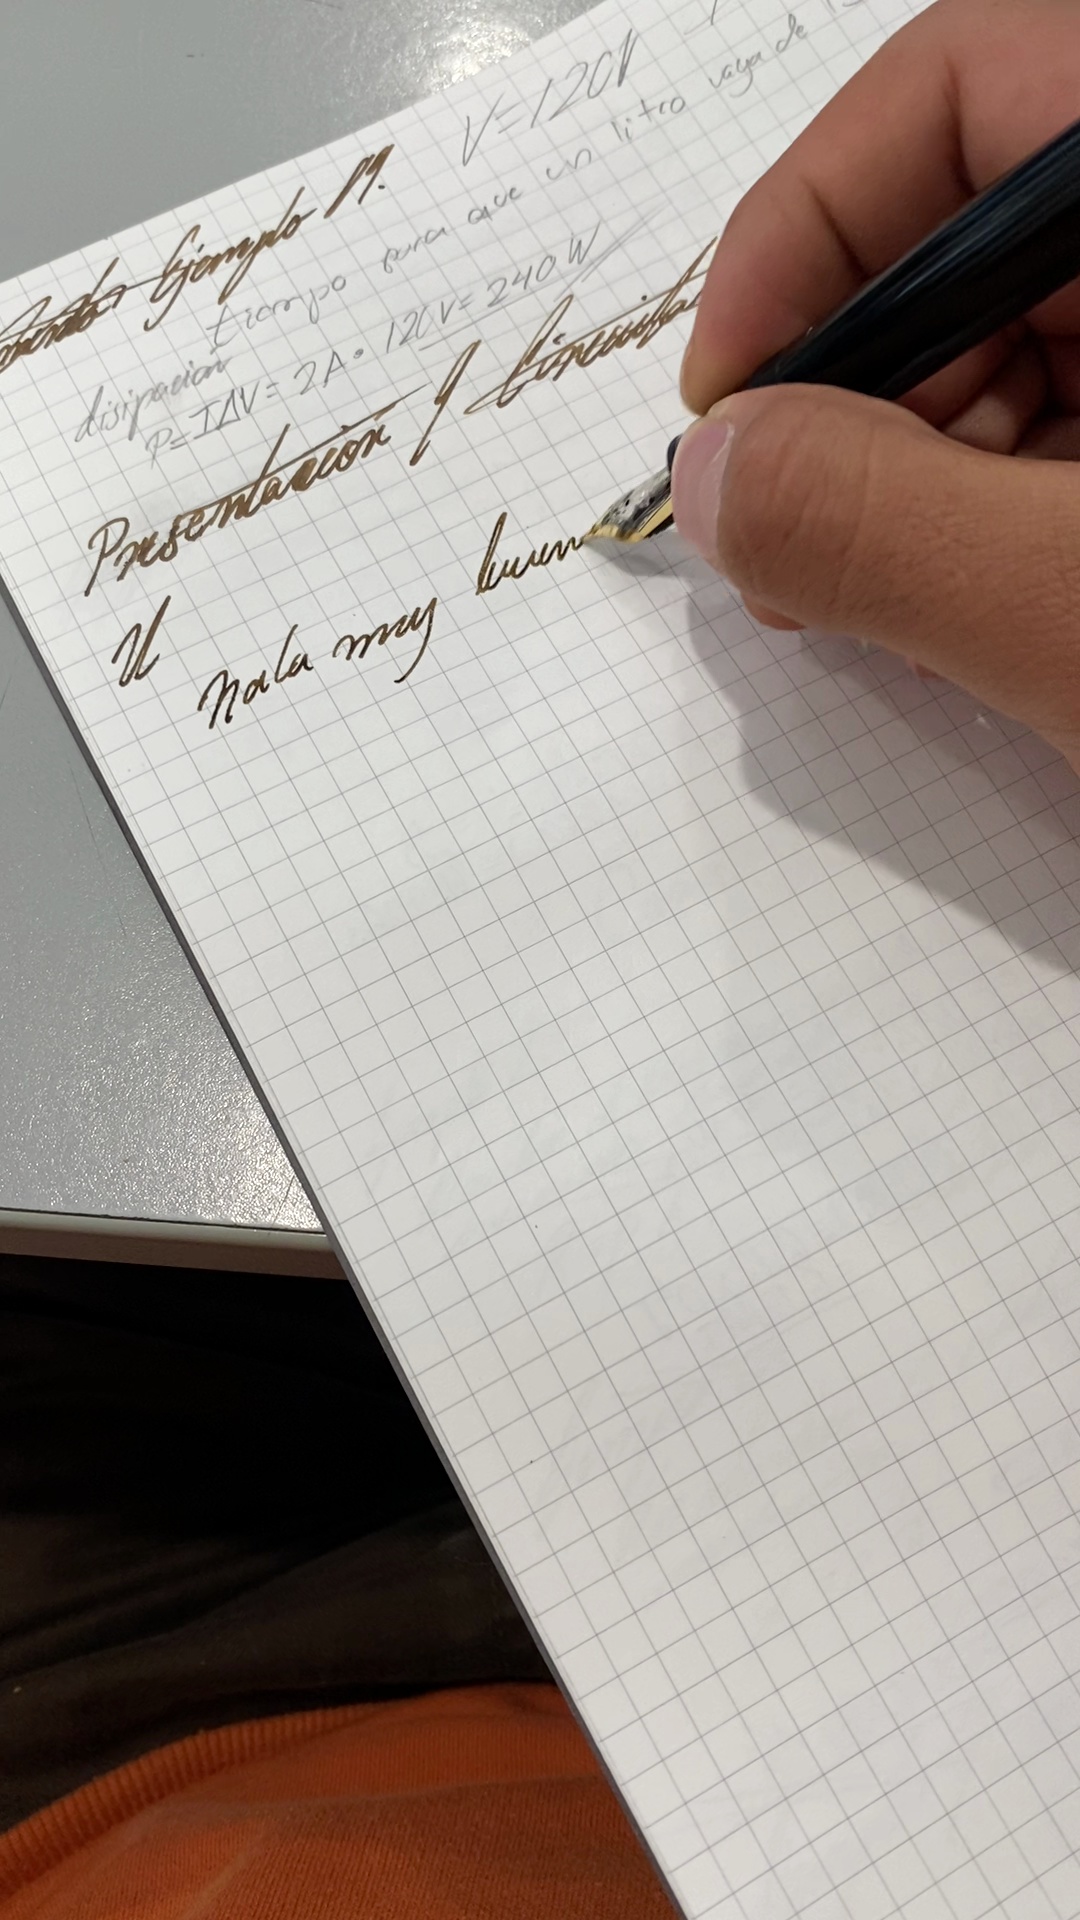 V=120V
Ejemplo 19.
tiempo para que un litro vaya de
disipación
P=IΔV= 2A • 120V= 240W
Presentación y Circuitos
U
hola muy buen